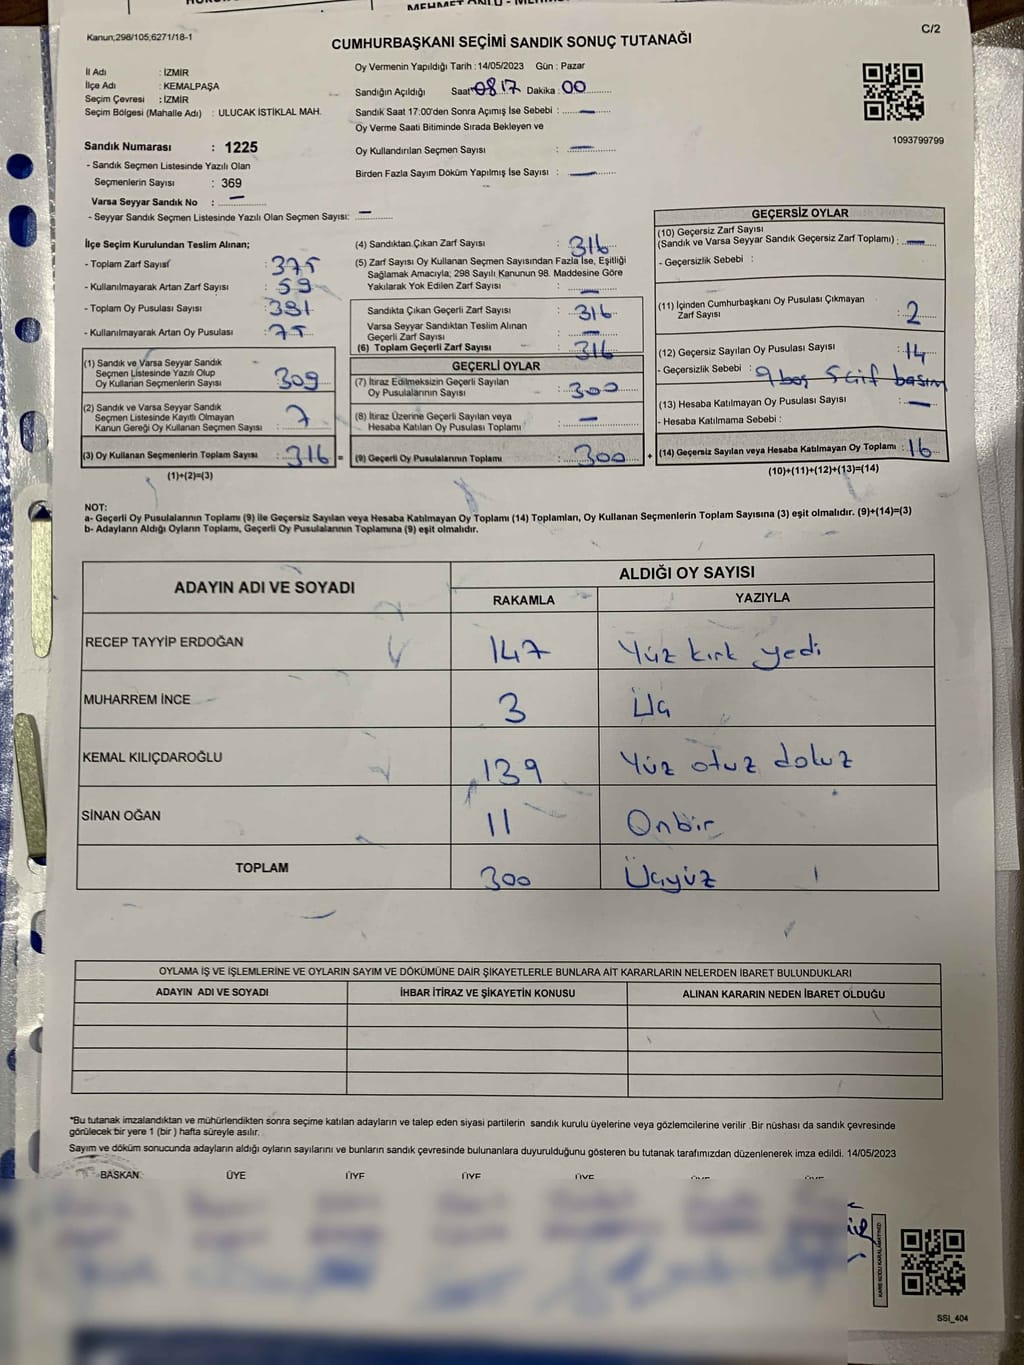 Kanun;298/105;6271/18-1
C/2
CUMHURBAŞKANI SEÇİMİ SANDIK SONUÇ TUTANAĞI
İl Adı : İZMİR
İlçe Adı : KEMALPAŞA
Seçim Çevresi : İZMİR
Seçim Bölgesi (Mahalle Adı) : ULUCAK İSTİKLAL MAH.
Sandık Numarası : 1225
- Sandık Seçmen Listesinde Yazılı Olan
Seçmenlerin Sayısı : 369
Varsa Seyyar Sandık No : —
- Seyyar Sandık Seçmen Listesinde Yazılı Olan Seçmen Sayısı: —
Oy Vermenin Yapıldığı Tarih : 14/05/2023 Gün : Pazar
Sandığın Açıldığı Saat 0817 Dakika 00
Sandık Saat 17:00'den Sonra Açımış İse Sebebi : —
Oy Verme Saati Bitiminde Sırada Bekleyen ve
Oy Kullandırılan Seçmen Sayısı : —
Birden Fazla Sayım Döküm Yapılmış İse Sayısı : —
1093799799
İlçe Seçim Kurulundan Teslim Alınan;
- Toplam Zarf Sayısı : 375
- Kullanılmayarak Artan Zarf Sayısı : 59
- Toplam Oy Pusulası Sayısı : 391
- Kullanılmayarak Artan Oy Pusulası : 75
(1) Sandık ve Varsa Seyyar Sandık
Seçmen Listesinde Yazılı Olup
Oy Kullanan Seçmenlerin Sayısı : 309
(2) Sandık ve Varsa Seyyar Sandık
Seçmen Listesinde Kayıtlı Olmayan
Kanun Gereği Oy Kullanan Seçmen Sayısı : 7
(3) Oy Kullanan Seçmenlerin Toplam Sayısı : 316 =
(1)+(2)=(3)
(4) Sandıktan Çıkan Zarf Sayısı : 316
(5) Zarf Sayısı Oy Kullanan Seçmen Sayısından Fazla İse, Eşitliği
Sağlamak Amacıyla; 298 Sayılı Kanunun 98. Maddesine Göre
Yakılarak Yok Edilen Zarf Sayısı : —
Sandıkta Çıkan Geçerli Zarf Sayısı : 316
Varsa Seyyar Sandıktan Teslim Alınan
Geçerli Zarf Sayısı : —
(6) Toplam Geçerli Zarf Sayısı : 316
GEÇERLİ OYLAR
(7) İtiraz Edilmeksizin Geçerli Sayılan
Oy Pusulalarının Sayısı : 300
(8) İtiraz Üzerine Geçerli Sayılan veya
Hesaba Katılan Oy Pusulası Toplamı : —
(9) Geçerli Oy Pusulalarının Toplamı : 300 +
GEÇERSİZ OYLAR
(10) Geçersiz Zarf Sayısı
(Sandık ve Varsa Seyyar Sandık Geçersiz Zarf Toplamı) : —
- Geçersizlik Sebebi :
(11) İçinden Cumhurbaşkanı Oy Pusulası Çıkmayan
Zarf Sayısı : 2
(12) Geçersiz Sayılan Oy Pusulası Sayısı : 14
- Geçersizlik Sebebi : 9 boş 5 çift basım
(13) Hesaba Katılmayan Oy Pusulası Sayısı : —
- Hesaba Katılmama Sebebi :
(14) Geçersiz Sayılan veya Hesaba Katılmayan Oy Toplamı : 16
(10)+(11)+(12)+(13)=(14)
NOT:
a- Geçerli Oy Pusulalarının Toplamı (9) ile Geçersiz Sayılan veya Hesaba Katılmayan Oy Toplamı (14) Toplamları, Oy Kullanan Seçmenlerin Toplam Sayısına (3) eşit olmalıdır. (9)+(14)=(3)
b- Adayların Aldığı Oyların Toplamı, Geçerli Oy Pusulalarının Toplamına (9) eşit olmalıdır.
ADAYIN ADI VE SOYADI ALDIĞI OY SAYISI
RAKAMLA YAZIYLA
RECEP TAYYİP ERDOĞAN 147 Yüz kırk yedi
MUHARREM İNCE 3 Üç
KEMAL KILIÇDAROĞLU 139 Yüz otuz dokuz
SİNAN OĞAN 11 Onbir
TOPLAM 300 Üçyüz
OYLAMA İŞ VE İŞLEMLERİNE VE OYLARIN SAYIM VE DÖKÜMÜNE DAİR ŞİKAYETLERLE BUNLARA AİT KARARLARIN NELERDEN İBARET BULUNDUKLARI
ADAYIN ADI VE SOYADI İHBAR İTİRAZ VE ŞİKAYETİN KONUSU ALINAN KARARIN NEDEN İBARET OLDUĞU
*Bu tutanak imzalandıktan ve mühürlendikten sonra seçime katılan adayların ve talep eden siyasi partilerin sandık kurulu üyelerine veya gözlemcilerine verilir .Bir nüshası da sandık çevresinde
görülecek bir yere 1 (bir ) hafta süreyle asılır.
Sayım ve döküm sonucunda adayların aldığı oyların sayılarını ve bunların sandık çevresinde bulunanlara duyurulduğunu gösteren bu tutanak tarafımızdan düzenlenerek imza edildi. 14/05/2023
BAŞKAN ÜYE ÜYE ÜYE ÜYE
KARE KODU KARALAMAYINIZ!
SSI_404